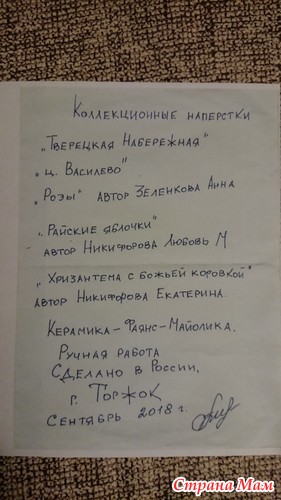 Коллекционные наперстки
"Тверецкая Набережная"
"ц. Василево"
"Розы" автор Зеленкова Анна
"Райские яблочки"
автор Никифорова Любовь М
"Хризантема с божьей коровкой"
автор Никифорова Екатерина.
Керамика-Фаянс-Майолика.
Ручная работа
Сделано в России.
г. Торжок
Сентябрь 2018 г.
Страна Мам